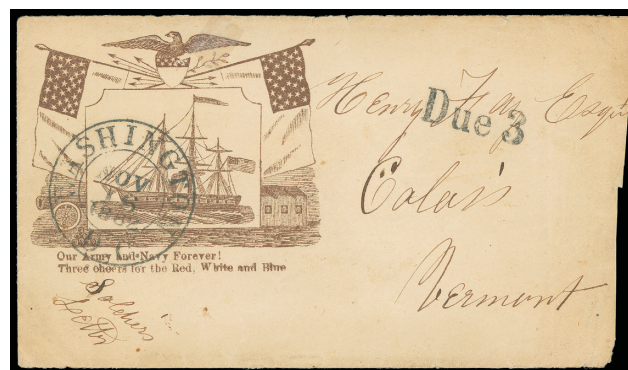 WASHINGTON
NOV
D.C.
Our Army and Navy Forever!
Three cheers for the Red, White and Blue
Soldier's
Letter
Due 3
Henry Fay Esqr
Calais
Vermont